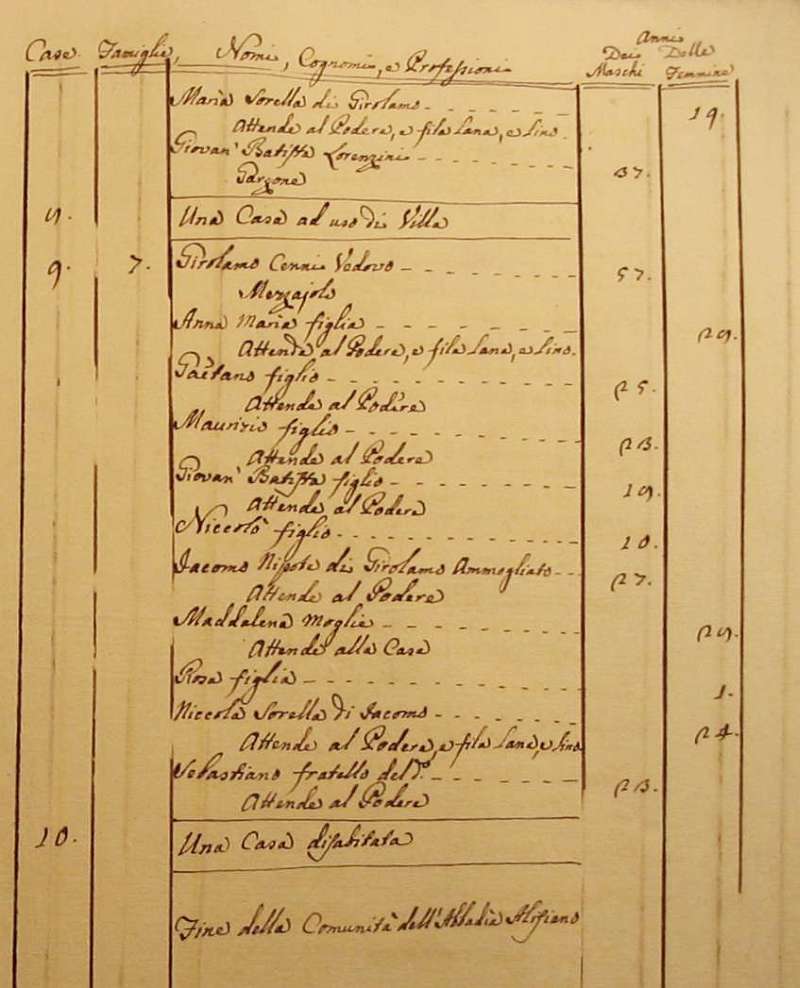 Case. Famiglie, Nomi, Cognomi, e Professioni Anni
Dei Maschi Delle Femmine
Maria Sorella di Girolamo 19.
Attende al Podere, e fila Lana, e Lino.
Giovan' Batista Lorenzini 37.
Garzone
Una Casa ad uso di Villa
9. 7. Girolamo Cenni Vedovo 57.
Mezzajolo
Anna Maria figlia 29.
Attende al Podere, e fila Lana, e Lino.
Gaetano figlio 25.
Attende al Podere
Maurizio figlio 23.
Attende al Podere
Giovan' Batista figlio 19.
Attende al Podere
Niccolò figlio 10.
Iacomo Nipote di Girolamo Ammogliato 27.
Attende al Podere
Maddalena Moglie 29.
Attende alla Casa
Rosa figlia 1.
Niccola Sorella di Iacomo 24.
Attende al Podere, e fila Lana, e Lino
Sebastiano fratello del d.º 23.
Attende al Podere
10. Una Casa disabitata
Fine della Comunità dell'Abbadia